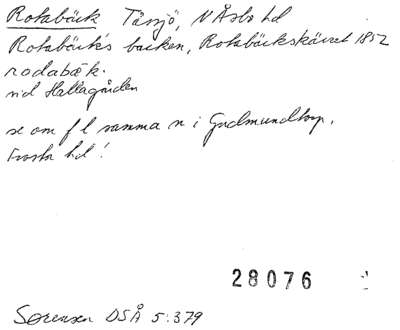 Rotabäck Tåssjö, N Åsbo hd
Rotabäcks backen, Rotabäckskärret 1852
rodabæk.
vid Hallagården
se om f l samma n i Gudmundtorp,
Frosta hd!
28076
Sørensen DSÅ 5:379